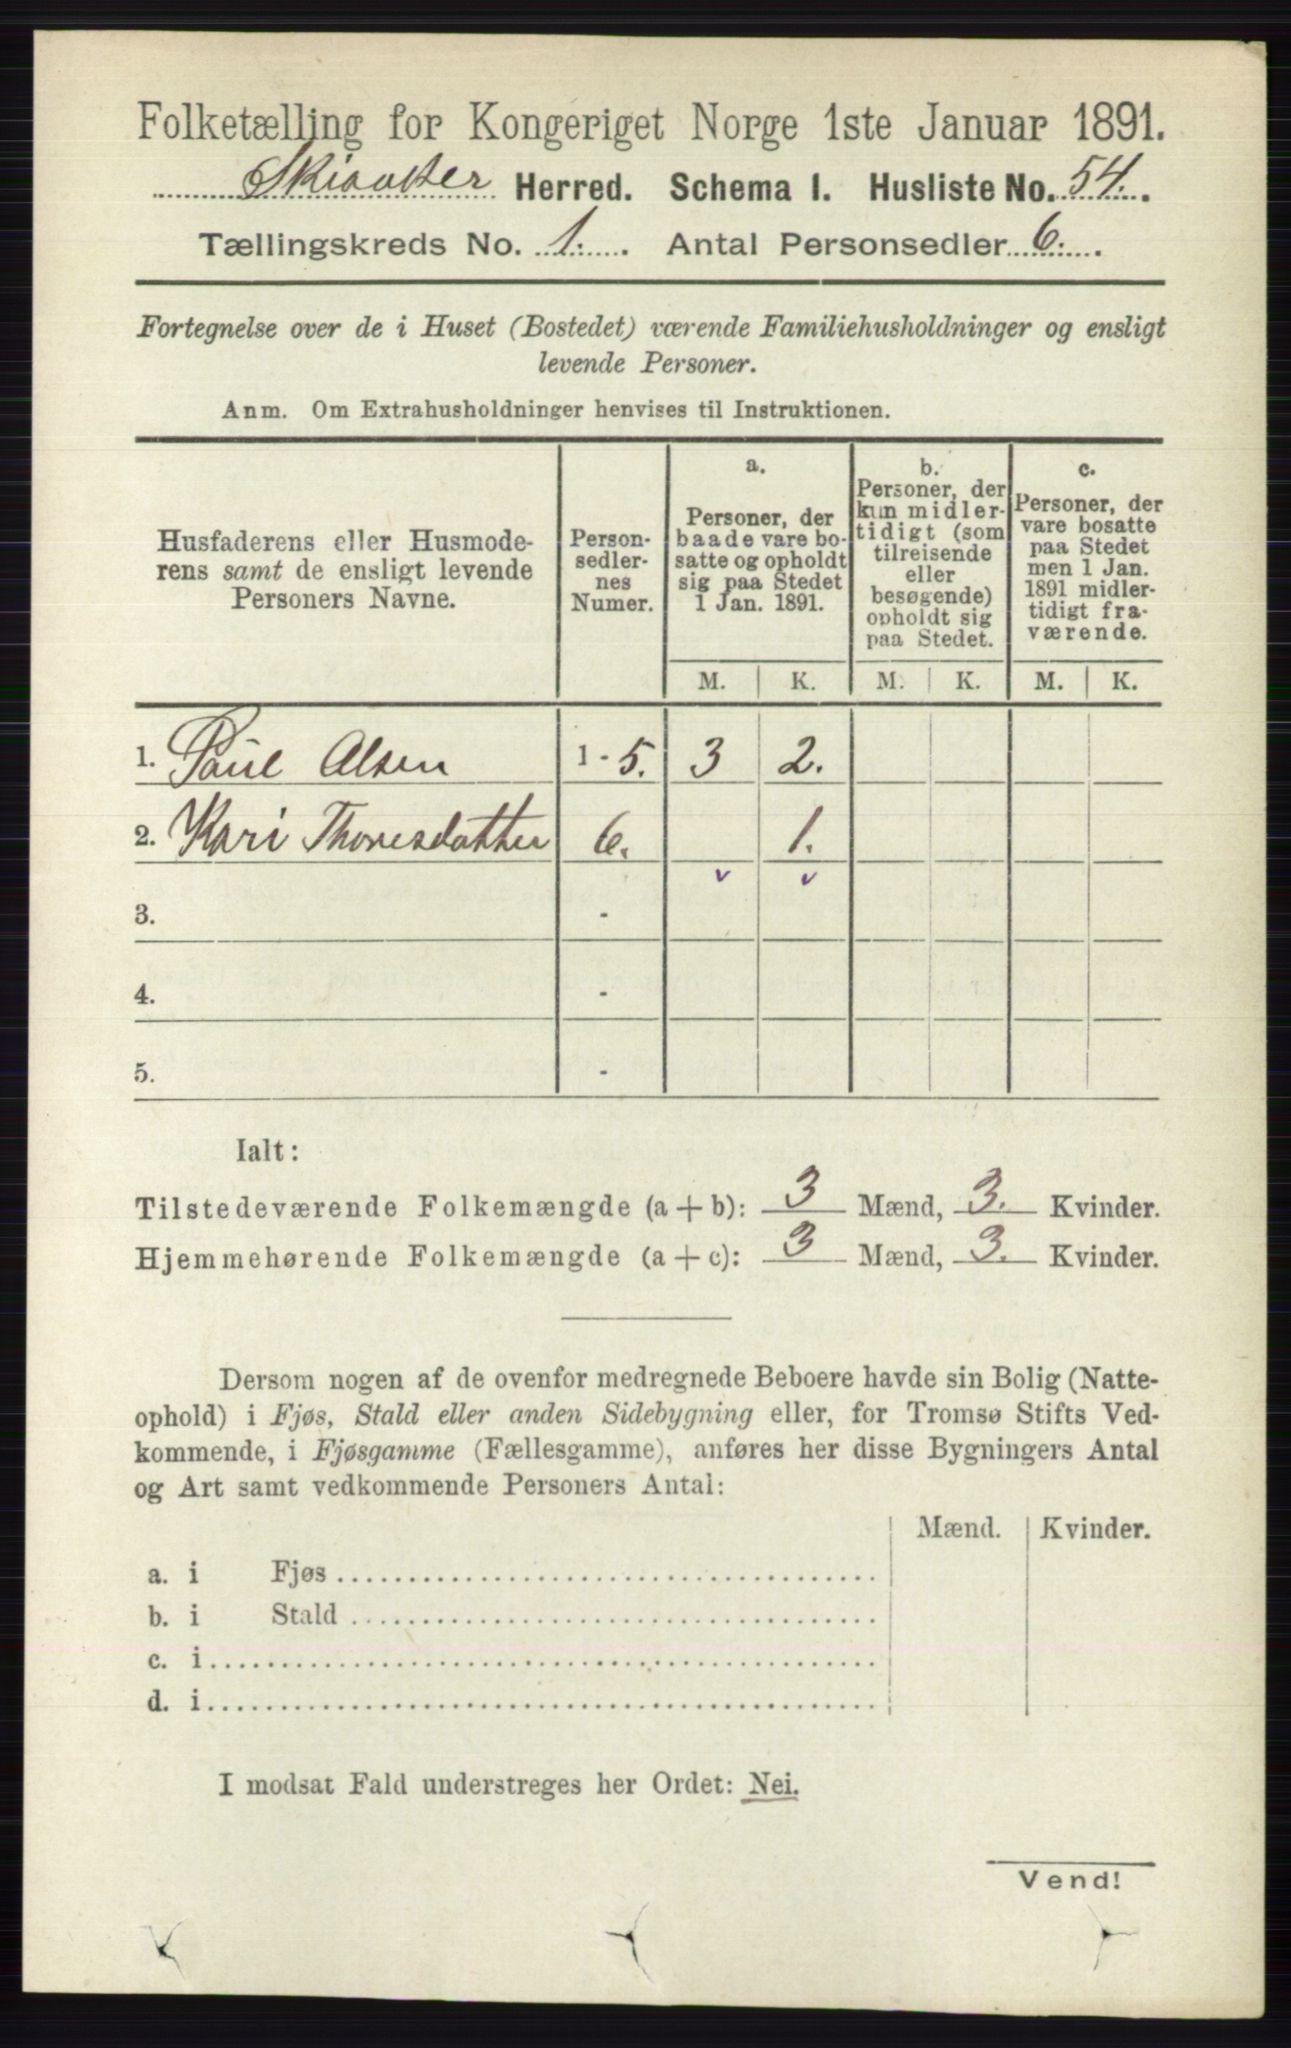 Folketælling for Kongeriget Norge 1ste Januar 1891.
Skiaaker Herred. Schema I. Husliste No. 54.
Tællingskreds No. 1. Antal Personsedler 6.
Fortegnelse over de i Huset (Bostedet) værende Familiehusholdninger og ensligt
levende Personer.
Anm. Om Extrahusholdninger henvises til Instruktionen.
Husfaderens eller Husmode-
rens samt de ensligt levende
Personers Navne.
Person-
sedler-
nes
Numer.
a.
Personer, der
baade vare bo-
satte og opholdt
sig paa Stedet
1 Jan. 1891.
b.
Personer, der
kun midler-
tidigt (som
tilreisende
eller
besøgende)
opholdt sig
paa Stedet.
c.
Personer, der
vare bosatte
paa Stedet
men 1 Jan.
1891 midler-
tidigt fra-
værende.
M. K. M. K. M. K.
1. Paul Olsen 1 - 5. 3 2.
2. Kari Thoresdatter 6. 1.
v v
3. -
4. -
5. -
Ialt:
Tilstedeværende Folkemængde (a + b): 3 Mænd, 3. Kvinder.
Hjemmehørende Folkemængde (a + c): 3 Mænd, 3. Kvinder.
Dersom nogen af de ovenfor medregnede Beboere havde sin Bolig (Natte-
ophold) i Fjøs, Stald eller anden Sidebygning eller, for Tromsø Stifts Ved-
kommende, i Fjøsgamme (Fællesgamme), anføres her disse Bygningers Antal
og Art samt vedkommende Personers Antal:
Mænd. Kvinder.
a. i Fjøs
b. i Stald
c. i
d. i
I modsat Fald understreges her Ordet: Nei.
Vend!